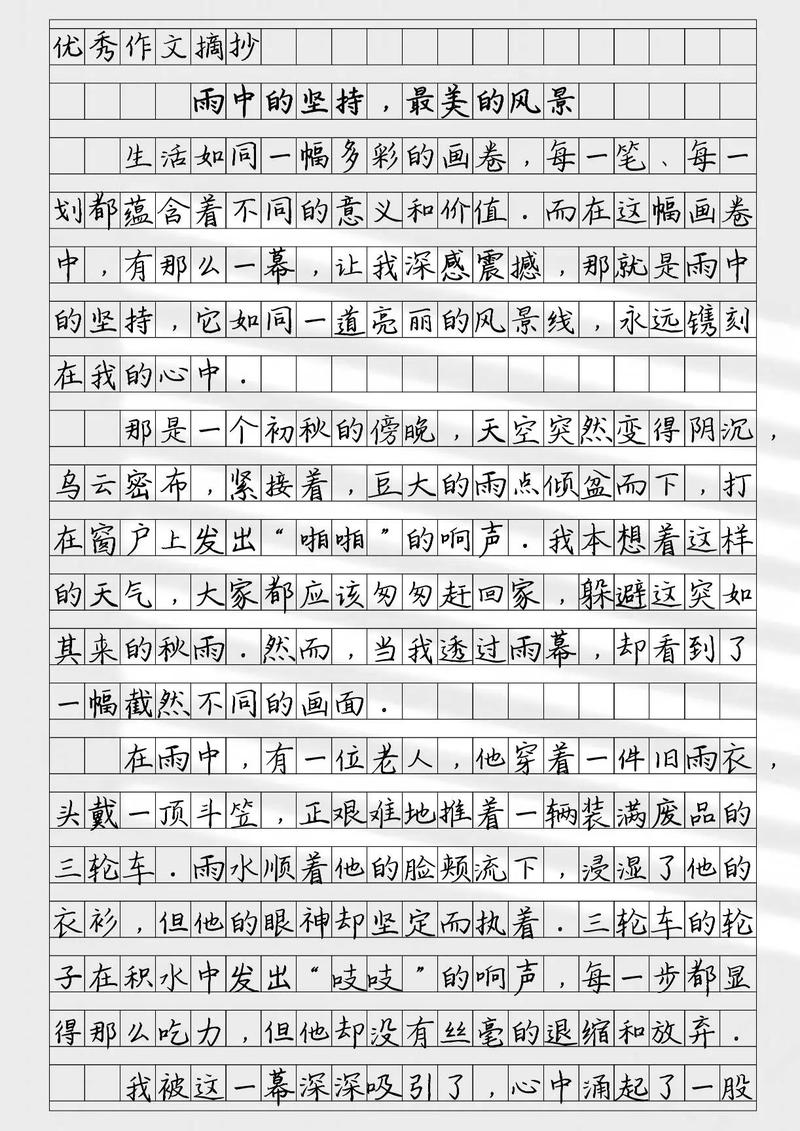 优秀作文摘抄
雨中的坚持，最美的风景
生活如同一幅多彩的画卷，每一笔、每一
划都蕴含着不同的意义和价值．而在这幅画卷
中，有那么一幕，让我深感震撼，那就是雨中
的坚持，它如同一道亮丽的风景线，永远镌刻
在我的心中．
那是一个初秋的傍晚，天空突然变得阴沉，
乌云密布，紧接着，豆大的雨点倾盆而下，打
在窗户上发出“啪啪”的响声．我本想着这样
的天气，大家都应该匆匆赶回家，躲避这突如
其来的秋雨．然而，当我透过雨幕，却看到了
一幅截然不同的画面．
在雨中，有一位老人，他穿着一件旧雨衣，
头戴一顶斗笠，正艰难地推着一辆装满废品的
三轮车．雨水顺着他的脸颊流下，浸湿了他的
衣衫，但他的眼神却坚定而执着．三轮车的轮
子在积水中发出“吱吱”的响声，每一步都显
得那么吃力，但他却没有丝毫的退缩和放弃．
我被这一幕深深吸引了，心中涌起了一股